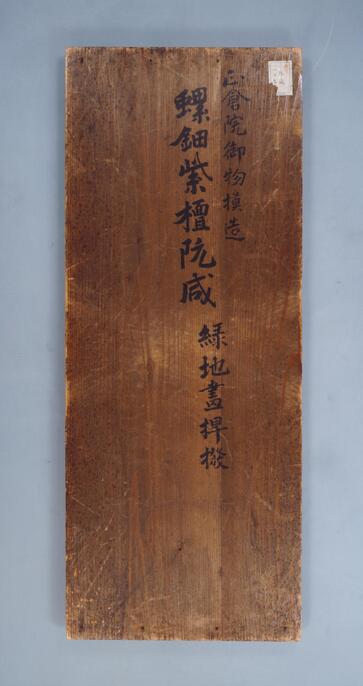 正倉院御物摸造
螺鈿紫檀阮咸
緑地畫捍撥